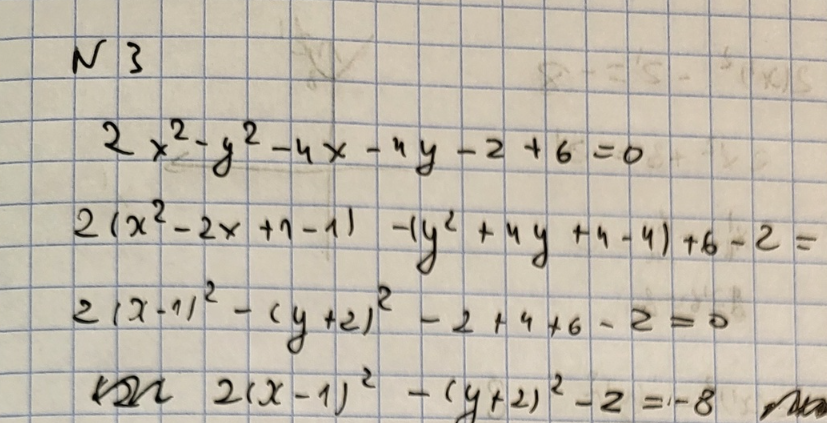 N 3
2x² - y² - 4x - 4y - 2 + 6 = 0
2(x² - 2x + 1 - 1) - (y² + 4y + 4 - 4) + 6 - 2 =
2(x - 1)² - (y + 2)² - 2 + 4 + 6 - 2 = 0
2(x - 1)² - (y + 2)² - 2 = -8